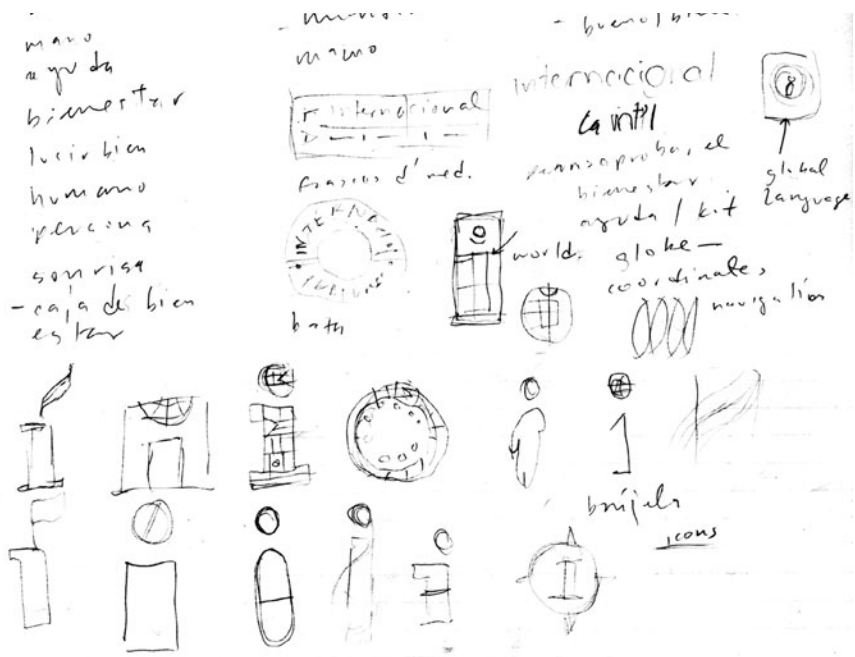 mano
ayuda
bienestar
lucir bien
humano
persona
sonrisa
- caja de bien
estar
mano
Internacional
frascos d' med.
INTERNACI
bata
world
internacional
la int'l
el
bienestar
ayuda / kit
globe -
coordinates
navigation
global
language
brújula
icons
I